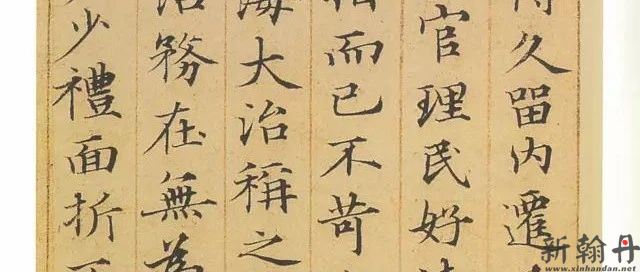 得久留内遷
官理民好
指而已不苛
海大治稱之
治務在無為
少禮面折不
新翰丹
www.xinhandan.net